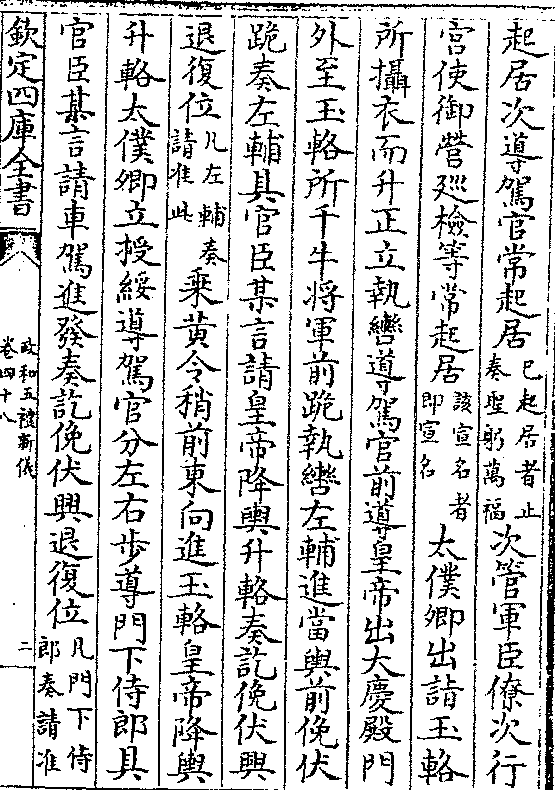 起居次導駕官常起居已起居者止奏聖躬萬福次管軍臣僚次行
宫使御營廵檢等常起居該宣名者即宣名太僕卿出詣玉輅
所攝衣而升正立執轡導駕官前導皇帝出大慶殿門
外至玉輅所千牛將軍前跪執轡左輔進當輿前俛伏
跪奏左輔具官臣某言請皇帝降輿升輅奏訖俛伏興
退復位凡左輔奏請准此乘黄令稍前東向進玉輅皇帝降輿
升輅太僕卿立授綏導駕官分左右步導門下侍郎具
官臣某言請車駕進發奏訖俛伏興退復位凡門下侍郎奏請准
欽定四庫全書
政和五禮新儀
卷四十八
二